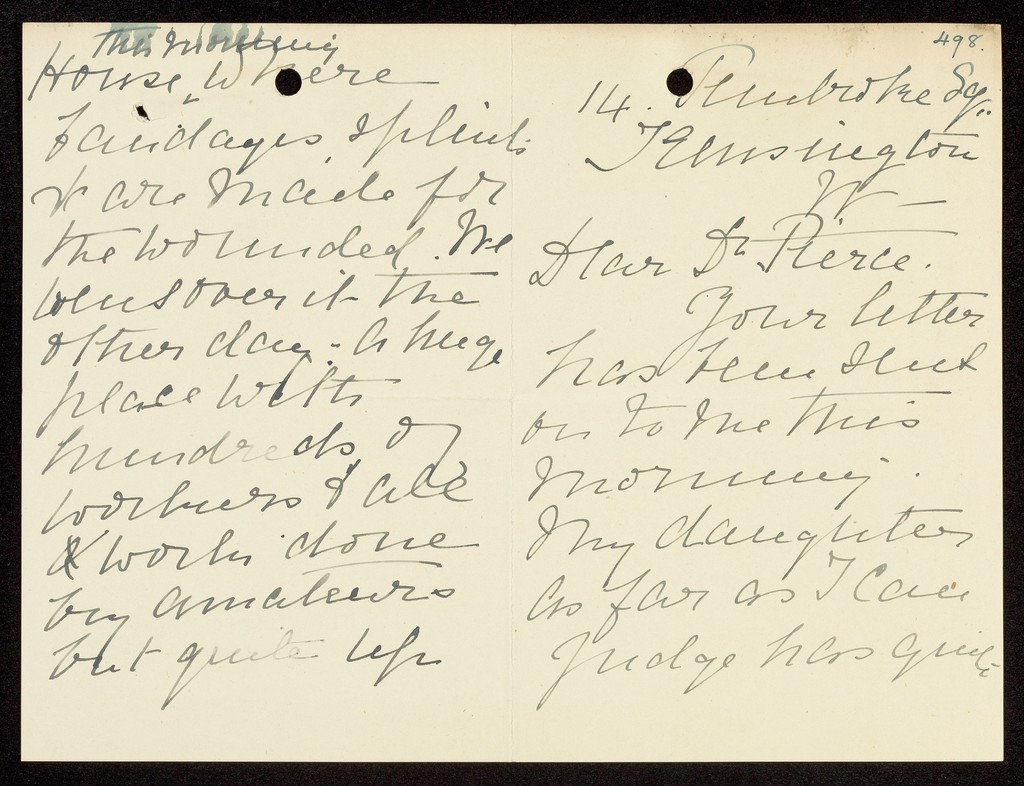 498.
14. Pembroke Sq.
Kensington
W –
Dear Dr Pierce.
Your letter
has been sent
on to me this
morning.
My daughter
as far as I can
judge has quite
this morning
House, where
bandages, splints
& are made for
the wounded. We
went over it the
other day – a huge
place with
hundreds of
workers & all
& work done
by amateurs
but quite up